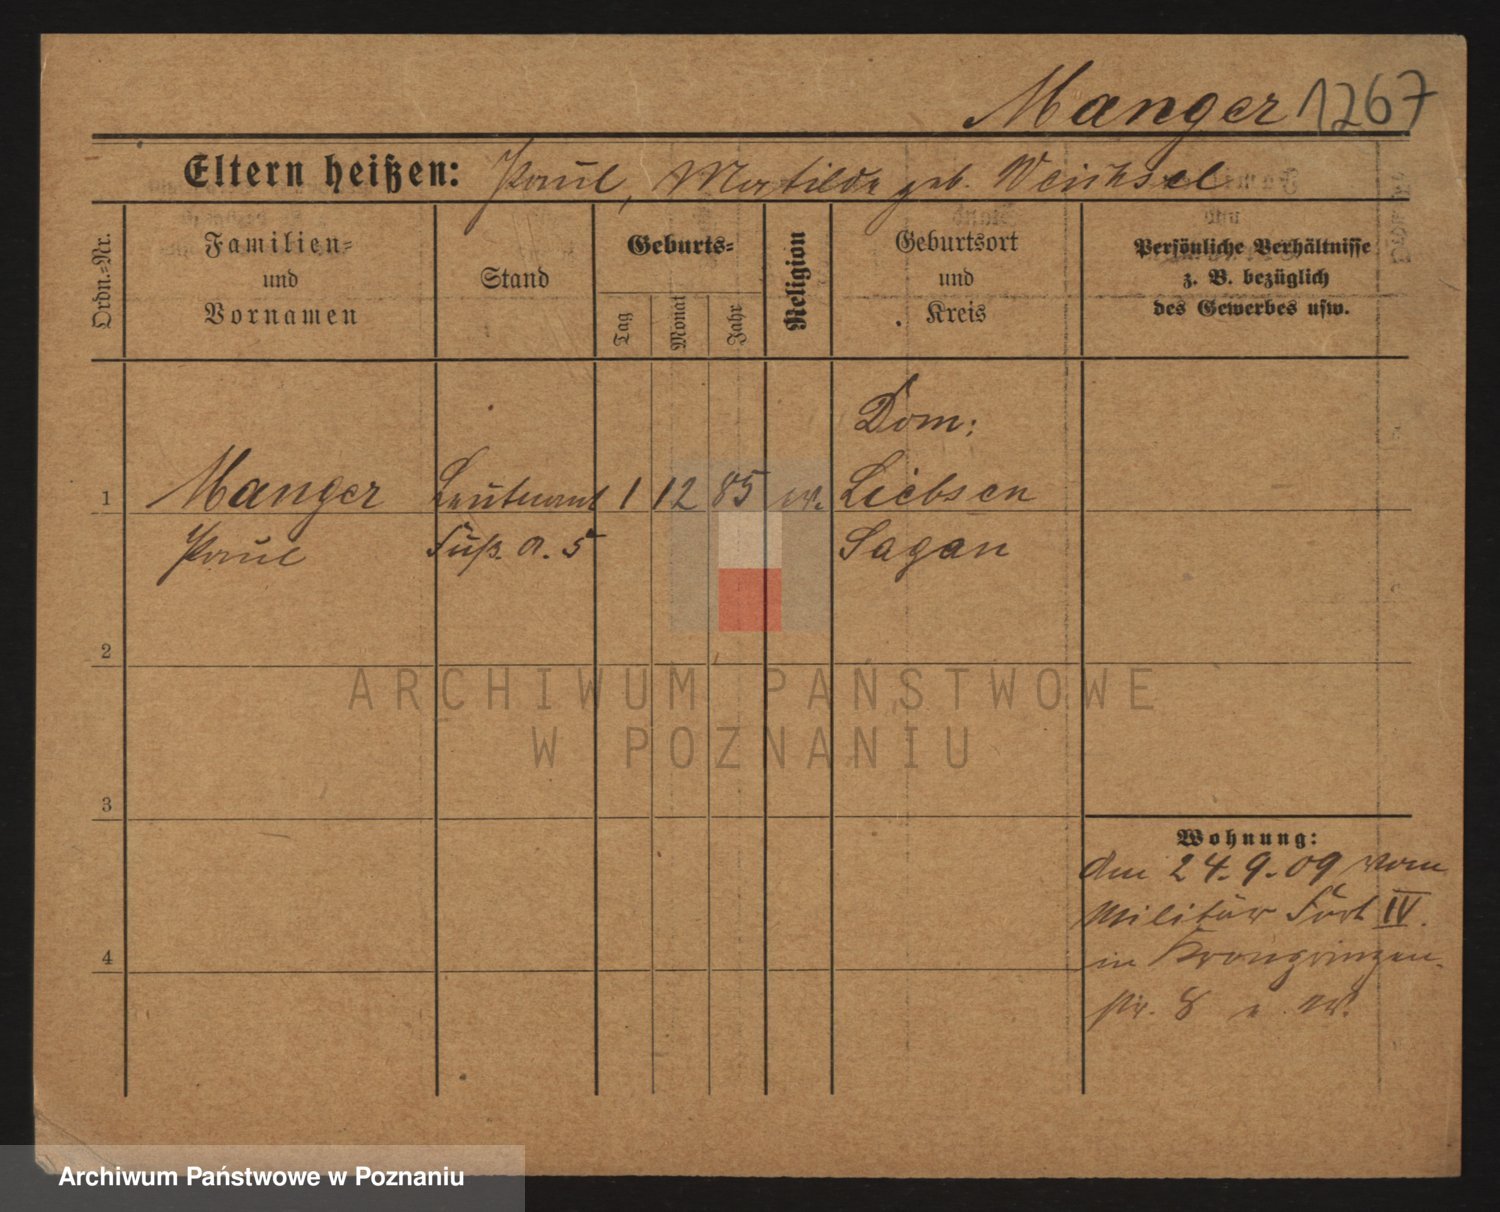 Manger 1267
Eltern heißen: Paul, Matilde geb. Weichsel
Ordn.-Nr.
Familien-
und
Vornamen
Stand
Geburts-
Tag
Monat
Jahr
Religion
Geburtsort
und
Kreis
Persönliche Verhältnisse
z. B. bezüglich
des Gewerbes usw.
Dom:
1 Manger Leutnant 1 12 85 ev. Liebsen
Paul Fuß. A. 5 Sagan
2
3
4
Wohnung:
den 24.9.09 vom
Militär Fort IV.
in Kronprinzen-
str. 8
ARCHIWUM PAŃSTWOWE
W POZNANIU
Archiwum Państwowe w Poznaniu